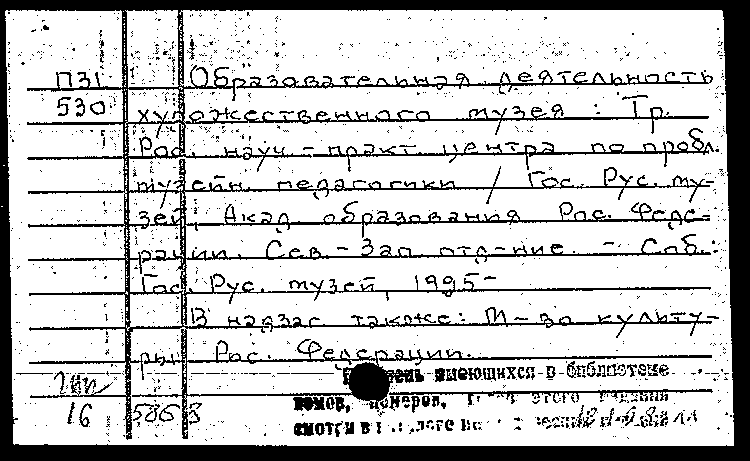 П31 Образовательная деятельность
530 художественного музея : Тр.
Рос. науч-практ. центра по пробл.
музейн. педагогики / Гос. Рус. му-
зей, Акад. образования Рос. Феде-
рации. Сев.-Зап. отд-ние. - Спб.:
Гос. Рус. музей, 1995-
В надзаг. также: М-во культу-
ры Рос. Федерации.
имеющихся в библиотеке
номеров, этого издания
смотри в
16 586 3